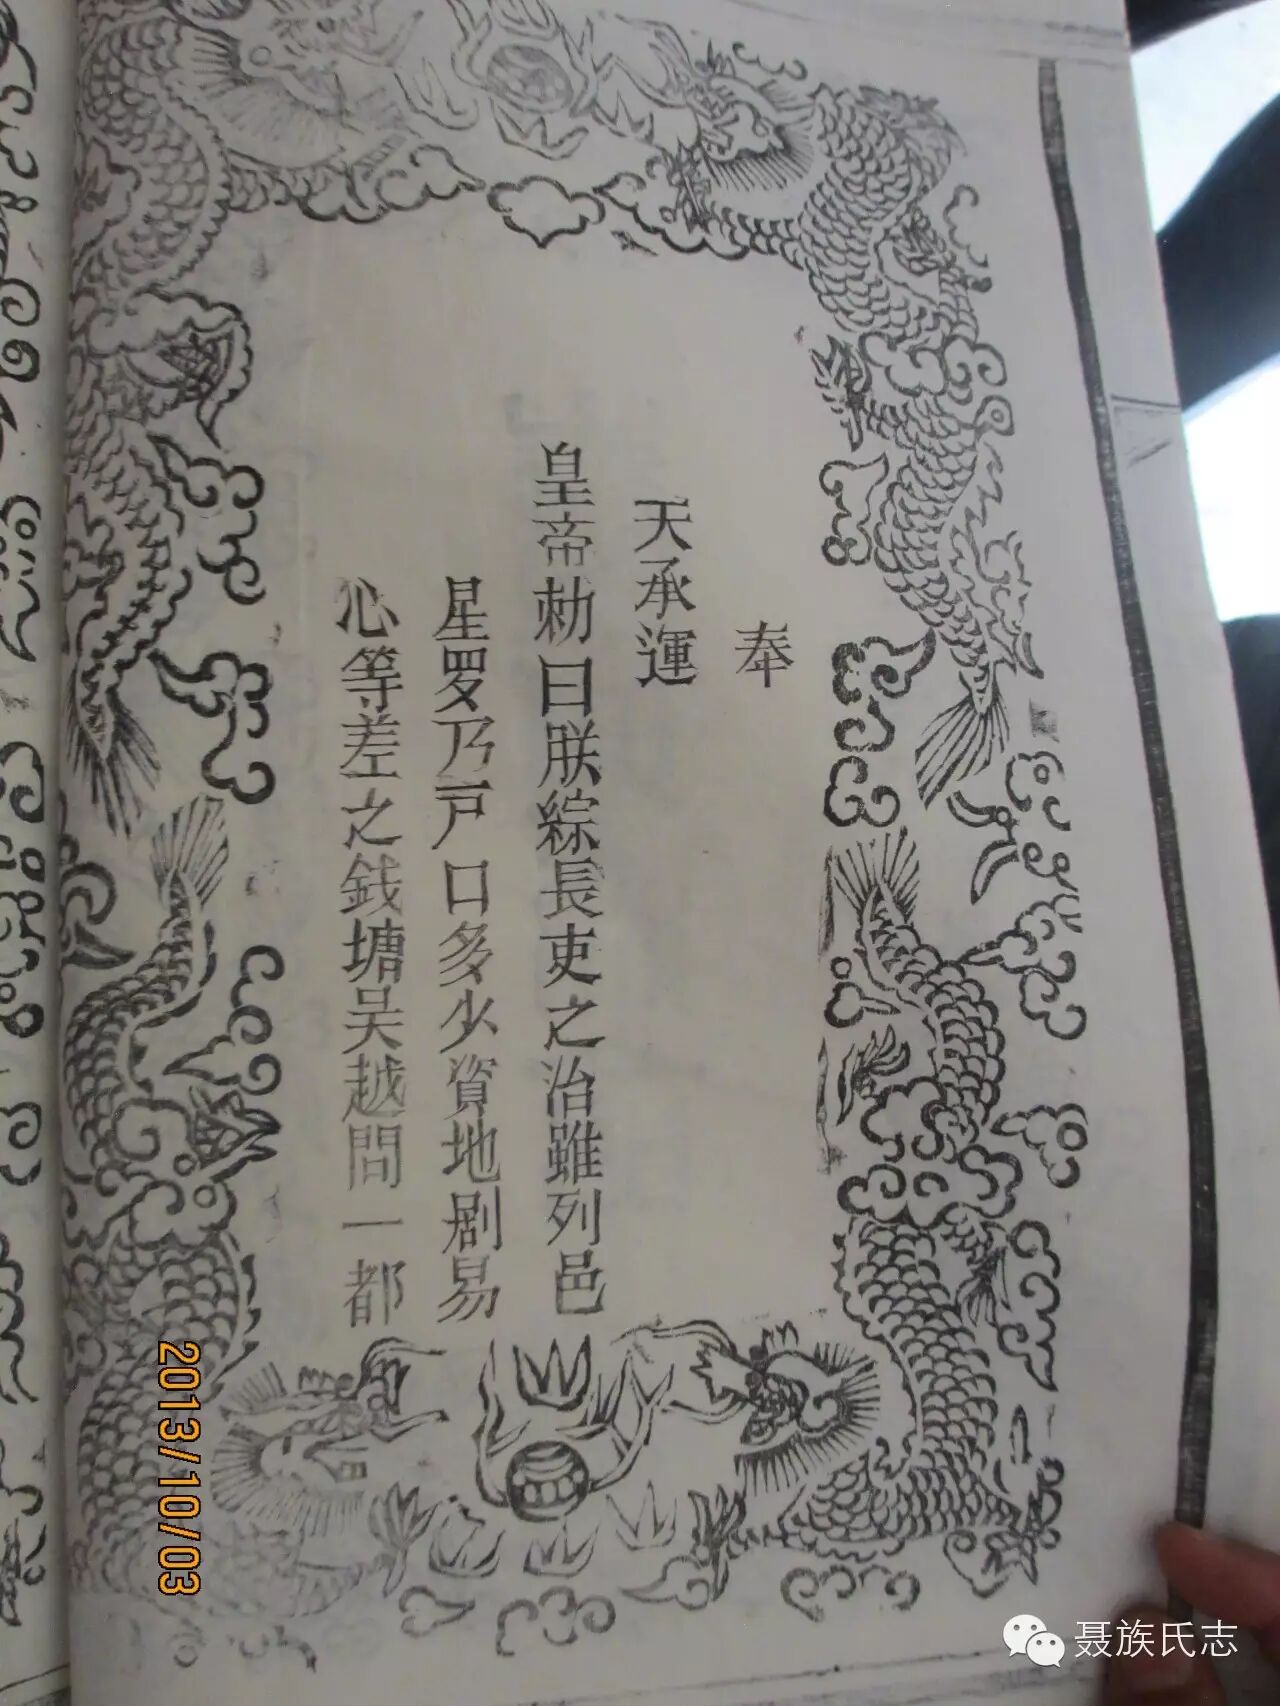 奉
天承運
皇帝勅曰朕綜長吏之治雖列邑
星罗乃戸口多少資地剧易
心等差之錢塘吴越間一都
2013/10/03
聂族氏志